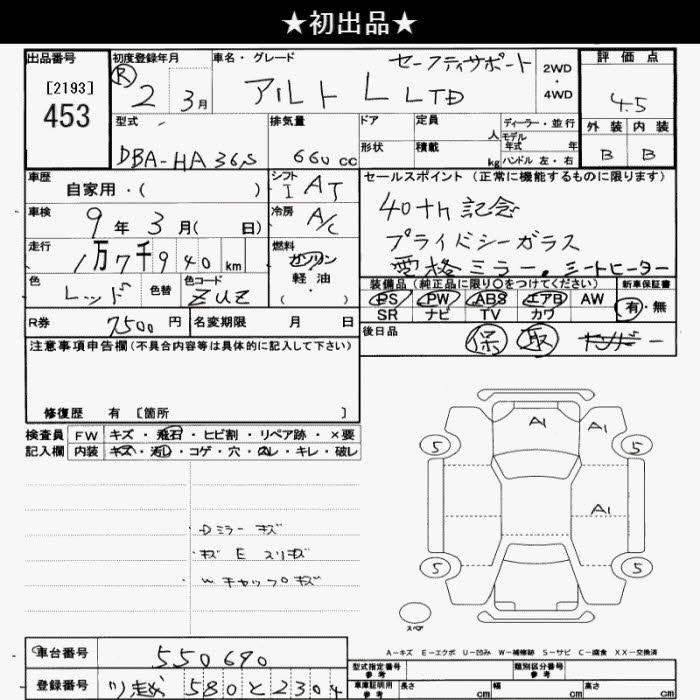 ★初出品★
出品番号
[2193]
453
初度登録年月
R 2 3月
車名・グレード
セーフティサポート
アルト L LTD
2WD
・
4WD
評価点
4.5
外装 内装
B B
型式
DBA-HA36S
排気量
660 cc
ドア
形状
定員 人
積載 kg
ディーラー・並行
モデル年式 年
ハンドル 左・右
車歴
自家用・( )
シフト
I AT
車検
9年3月( 日)
冷房
A/C
走行
1万7千940km
燃料
ガソリン
軽油
( )
色
レッド
色替
色コード
ZUZ
R券
7500円
名変期限 月 日
セールスポイント(正常に機能するものに限ります)
40th記念
プライバシーガラス
ミラー.シートヒーター
装備品(純正品に限り○をつけてください)
PS PW ABS エアB AW
SR ナビ TV カワ
新車保証書
有・無
後日品
保 取
注意事項申告欄(不具合内容等は具体的に記入して下さい)
修復歴 有 [箇所 ]
検査員記入欄
FW キズ・飛石・ヒビ割・リペア跡・×要
内装 キズ・汚レ・コゲ・穴・スレ・キレ・破レ
Dミラー キズ
キズ E スリキズ
Wキャップキズ
A1
A1
A1
5
5
5
5
スペア
A-キズ E-エクボ U-凹み W-補修跡 S-サビ C-腐食 XX-交換済
車台番号
550690
登録番号
580 と 2304
型式指定番号
参考
類別区分番号
参考
車庫証明用
参考
長さ cm
幅 cm
高さ cm